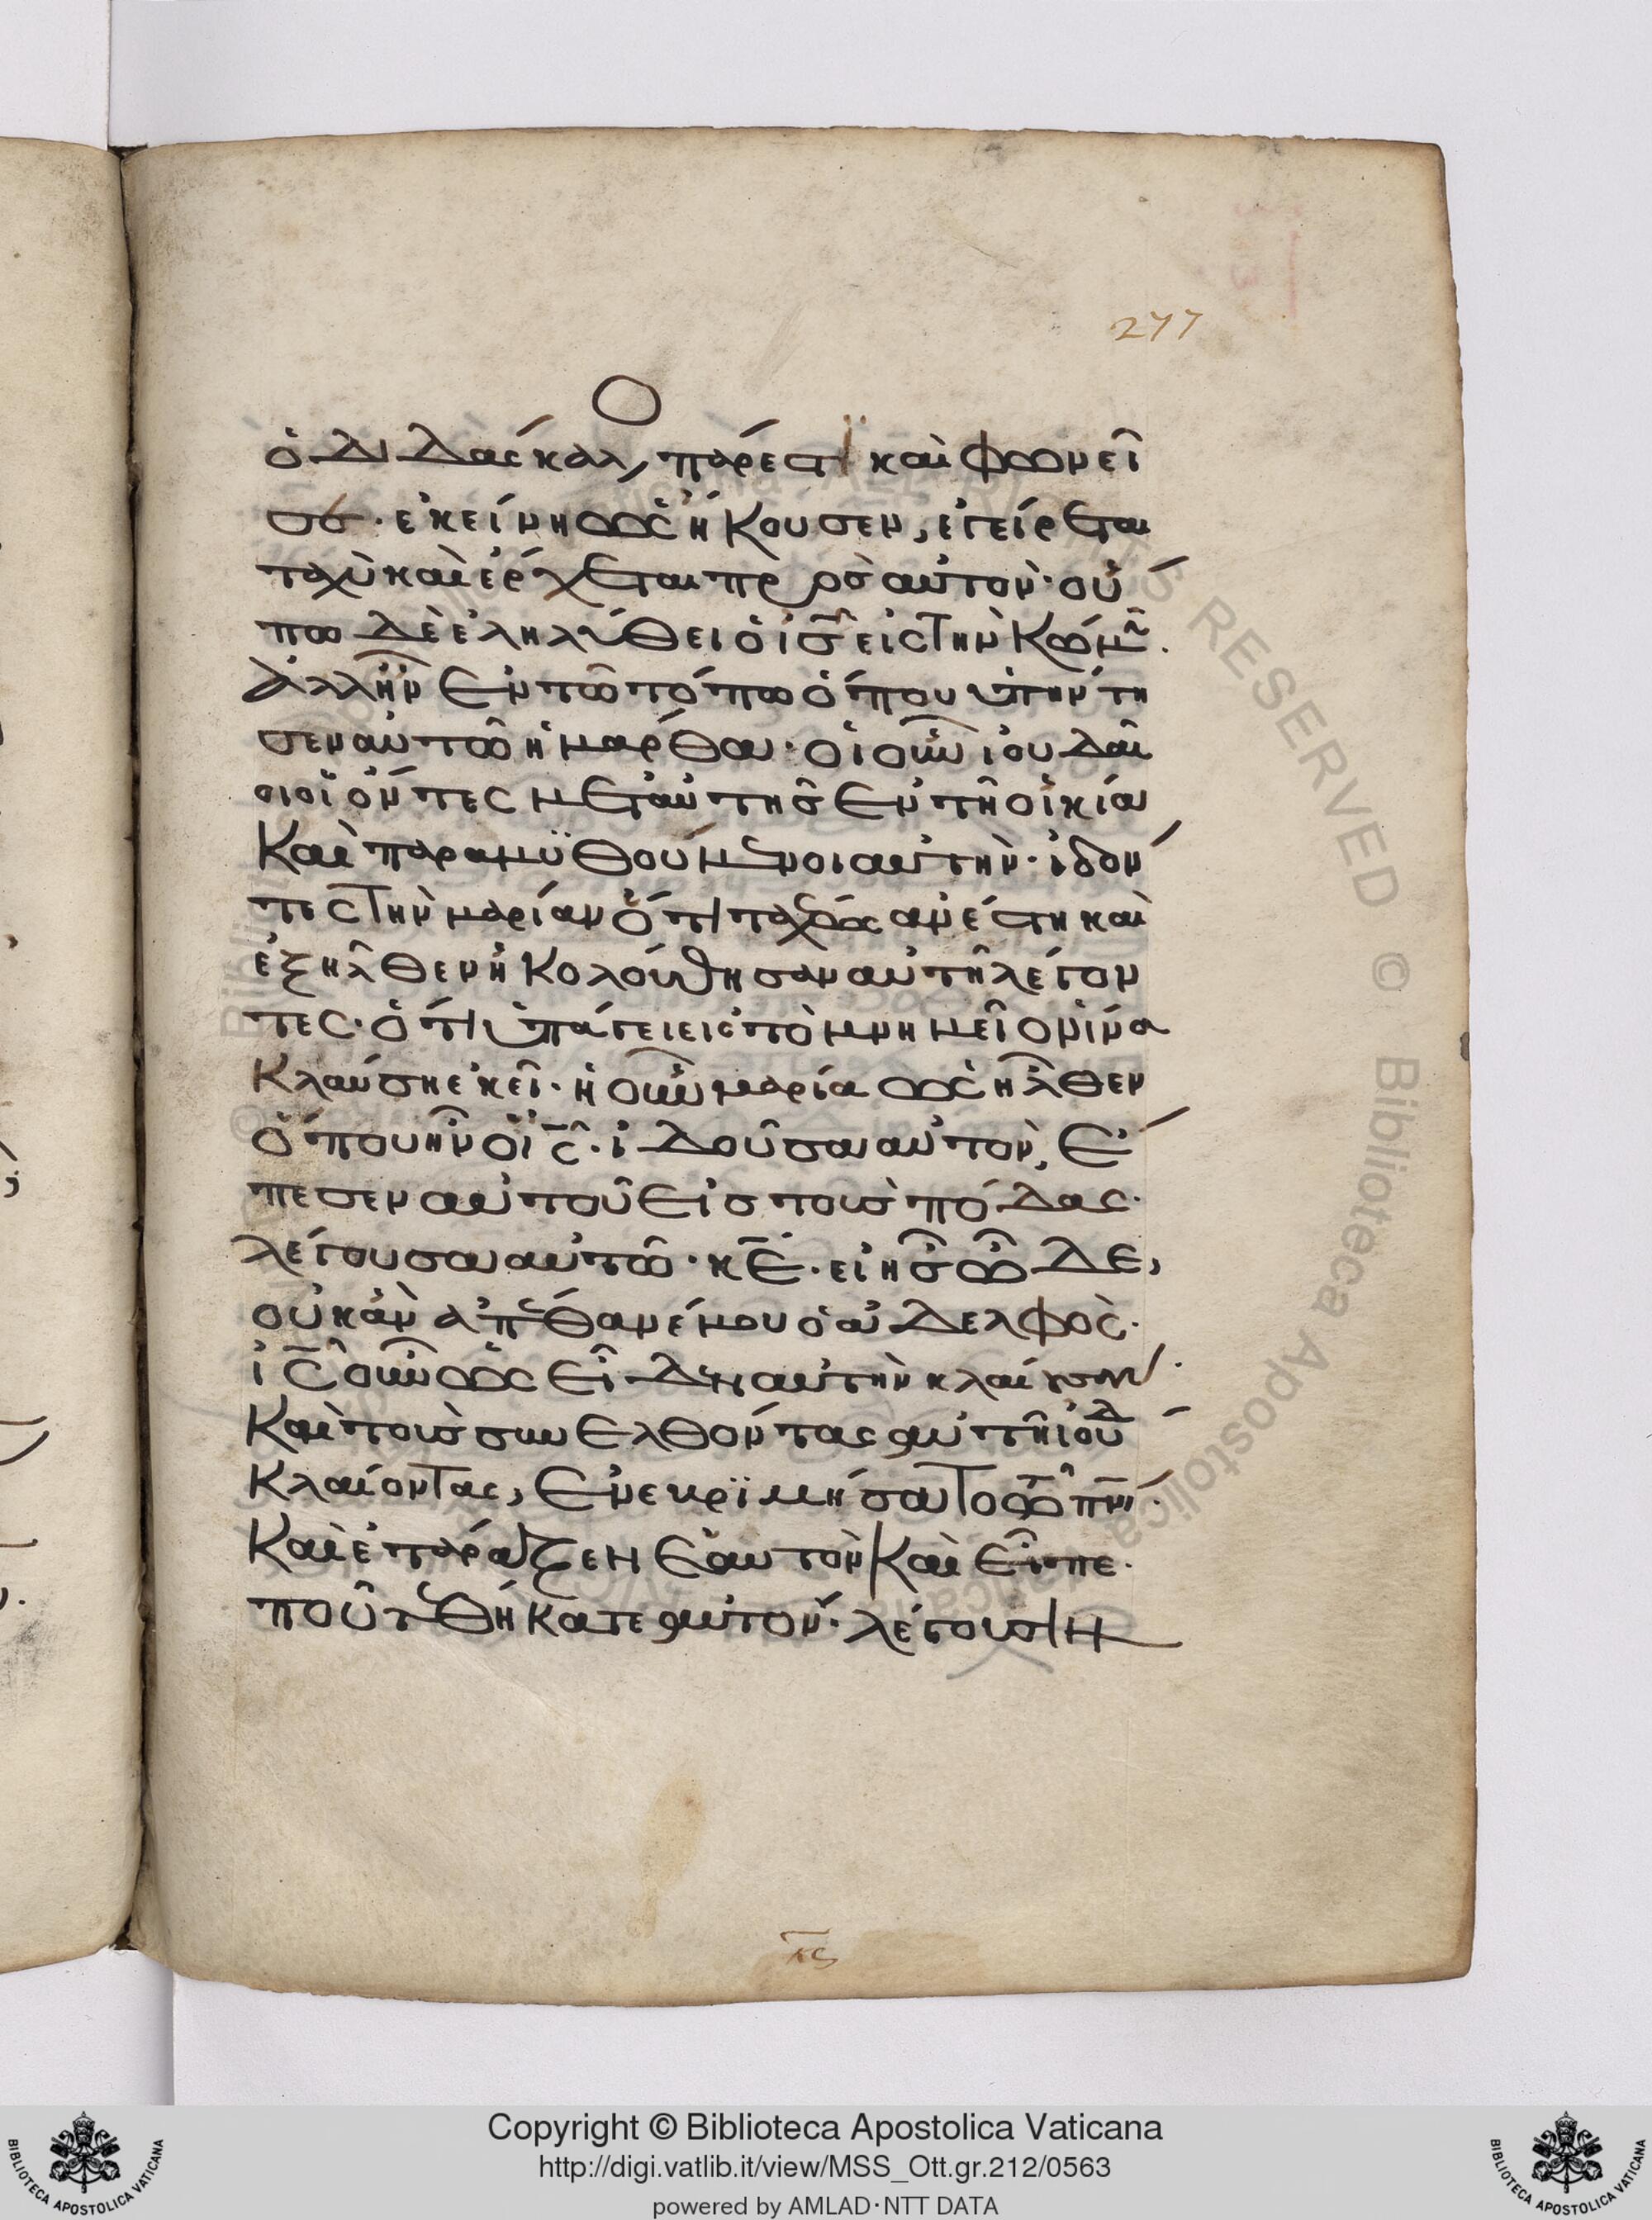 277
ὁ διδάσκαλ, πάρεστι καὶ φωνεῖ
σε. ἐκείνη ὡς ἤκουσεν, ἐγείρεται
ταχὺ καὶ ἔρχεται πρὸς αὐτόν· οὔ
πω δὲ ἐληλύθει ὁ ι̅ς̅ εἰς τὴν κώμ̅.
ἀλλ' ἦν ἐν τῶ τόπω ὅπου ὑπήντη
σεν αὐτῶ ἡ μάρθα· οἱ οὖν ἰουδαῖ
οι οἱ ὄντες μετ' αὐτῆς ἐν τῆ οἰκία
καὶ παραμϋθούμενοι αὐτήν· ἰδόν
τες τὴν μαρίαν ὅτι ταχέως ἀνέστη καὶ
ἐξῆλθεν ἠκολούθησαν αὐτῆ λέγον
τες· ὅτι ὑπάγει εἰς τὸ μνημεῖον ἵνα
κλαύση ἐκεῖ· ἡ οὖν μαρία ὡς ἦλθεν
ὅπου ἦν ὁ ι̅ς̅· ἰδοῦσα αὐτὸν, ἔ
πεσεν αὐτοῦ εἰς τοὺς πόδας·
λέγουσα αὐτῶ· κ̅ε̅· εἰ ἦς ὧδε,
οὐκ ἂν ἀπέθανέ μου ὁ ἀδελφὸς·
ι̅ς̅ οὖν ὡς εἶδεν αὐτὴν κλαίουσαν·
καὶ τοὺς συνελθόντας αὐτῆ ἰουδ
κλαίοντας, ἐνεβριμήσατο τῶ π̅ν̅ι̅·
καὶ ἐτάραξεν ἑαυτὸν καὶ εἶπε·
ποῦ τεθήκατε αὐτόν· λέγουσιν
κς
Copyright © Biblioteca Apostolica Vaticana
http://digi.vatlib.it/view/MSS_Ott.gr.212/0563
powered by AMLAD·NTT DATA